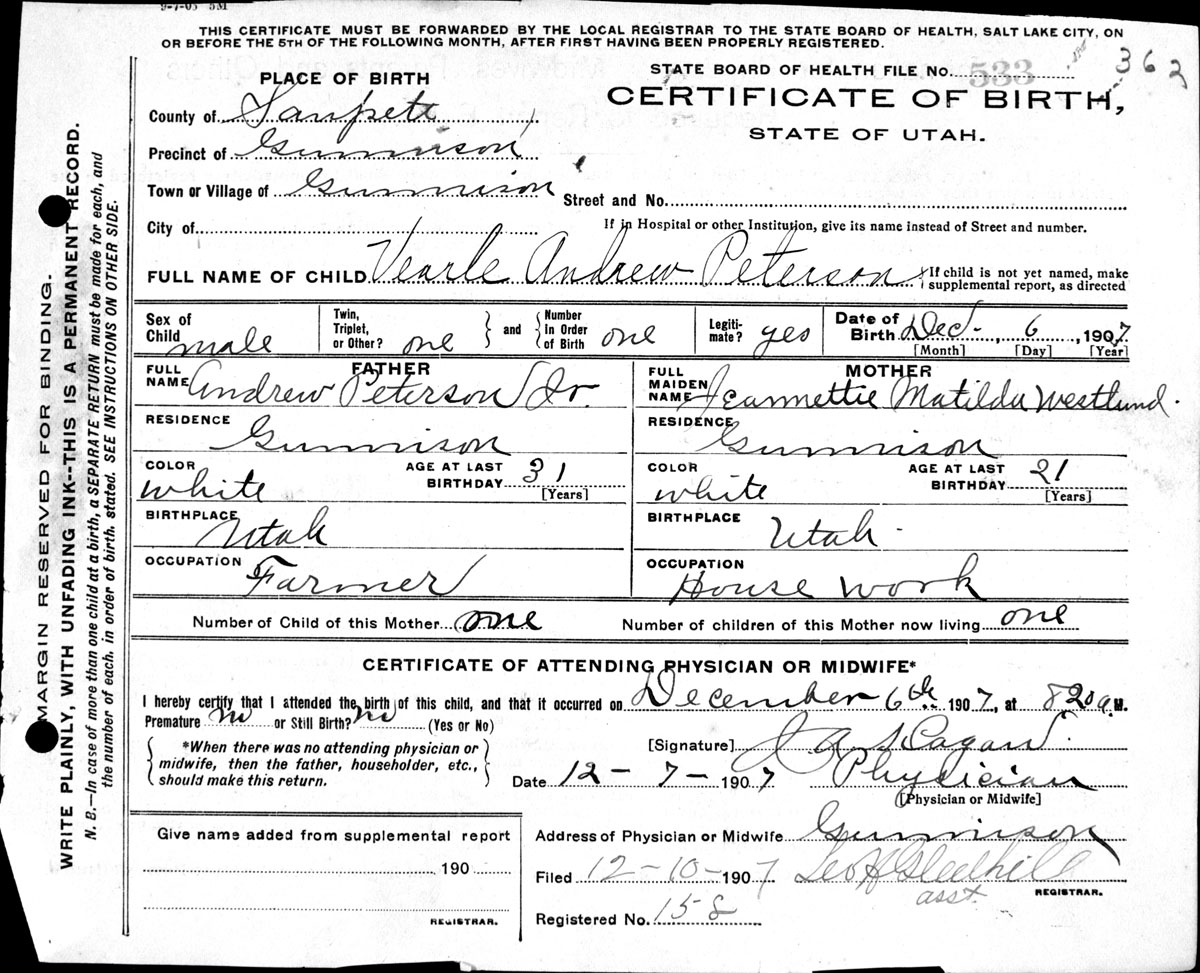 9-7-05 5M
THIS CERTIFICATE MUST BE FORWARDED BY THE LOCAL REGISTRAR TO THE STATE BOARD OF HEALTH, SALT LAKE CITY, ON
OR BEFORE THE 5TH OF THE FOLLOWING MONTH, AFTER FIRST HAVING BEEN PROPERLY REGISTERED.
362
PLACE OF BIRTH
STATE BOARD OF HEALTH FILE NO. 533
County of Sanpete
CERTIFICATE OF BIRTH,
STATE OF UTAH.
Precinct of Gunnison
Town or Village of Gunnison Street and No.
City of If in Hospital or other Institution, give its name instead of Street and number.
FULL NAME OF CHILD Vearle Andrew Peterson { If child is not yet named, make
supplemental report, as directed
Sex of Child male Twin, Triplet, or Other? one } and { Number In Order of Birth one Legiti-mate? yes Date of Birth Dec. 6, 1907
[Month] [Day] [Year]
FATHER MOTHER
FULL NAME Andrew Peterson Jr. FULL MAIDEN NAME Jeannettie Matilda Westlund.
RESIDENCE Gunnison RESIDENCE Gunnison
COLOR white AGE AT LAST BIRTHDAY 31 [Years] COLOR white AGE AT LAST BIRTHDAY 21 [Years]
BIRTHPLACE Utah BIRTHPLACE Utah
OCCUPATION Farmer OCCUPATION House work
Number of Child of this Mother one Number of children of this Mother now living one
CERTIFICATE OF ATTENDING PHYSICIAN OR MIDWIFE*
I hereby certify that I attended the birth of this child, and that it occurred on December 6th 1907, at 820 a.M.
Premature no or Still Birth? no (Yes or No)
{ *When there was no attending physician or
midwife, then the father, householder, etc.,
should make this return. }
[Signature] A Hagan
Date 12 - 7 - 1907 Physician
[Physician or Midwife]
Give name added from supplemental report
190
REGISTRAR.
Address of Physician or Midwife Gunnison
Filed 12-10-1907 Leo H Gledhill
asst. REGISTRAR.
Registered No. 158
MARGIN RESERVED FOR BINDING.
WRITE PLAINLY, WITH UNFADING INK--THIS IS A PERMANENT RECORD.
N. B.—In case of more than one child at a birth, a SEPARATE RETURN must be made for each, and
the number of each, in order of birth, stated. SEE INSTRUCTIONS ON OTHER SIDE.